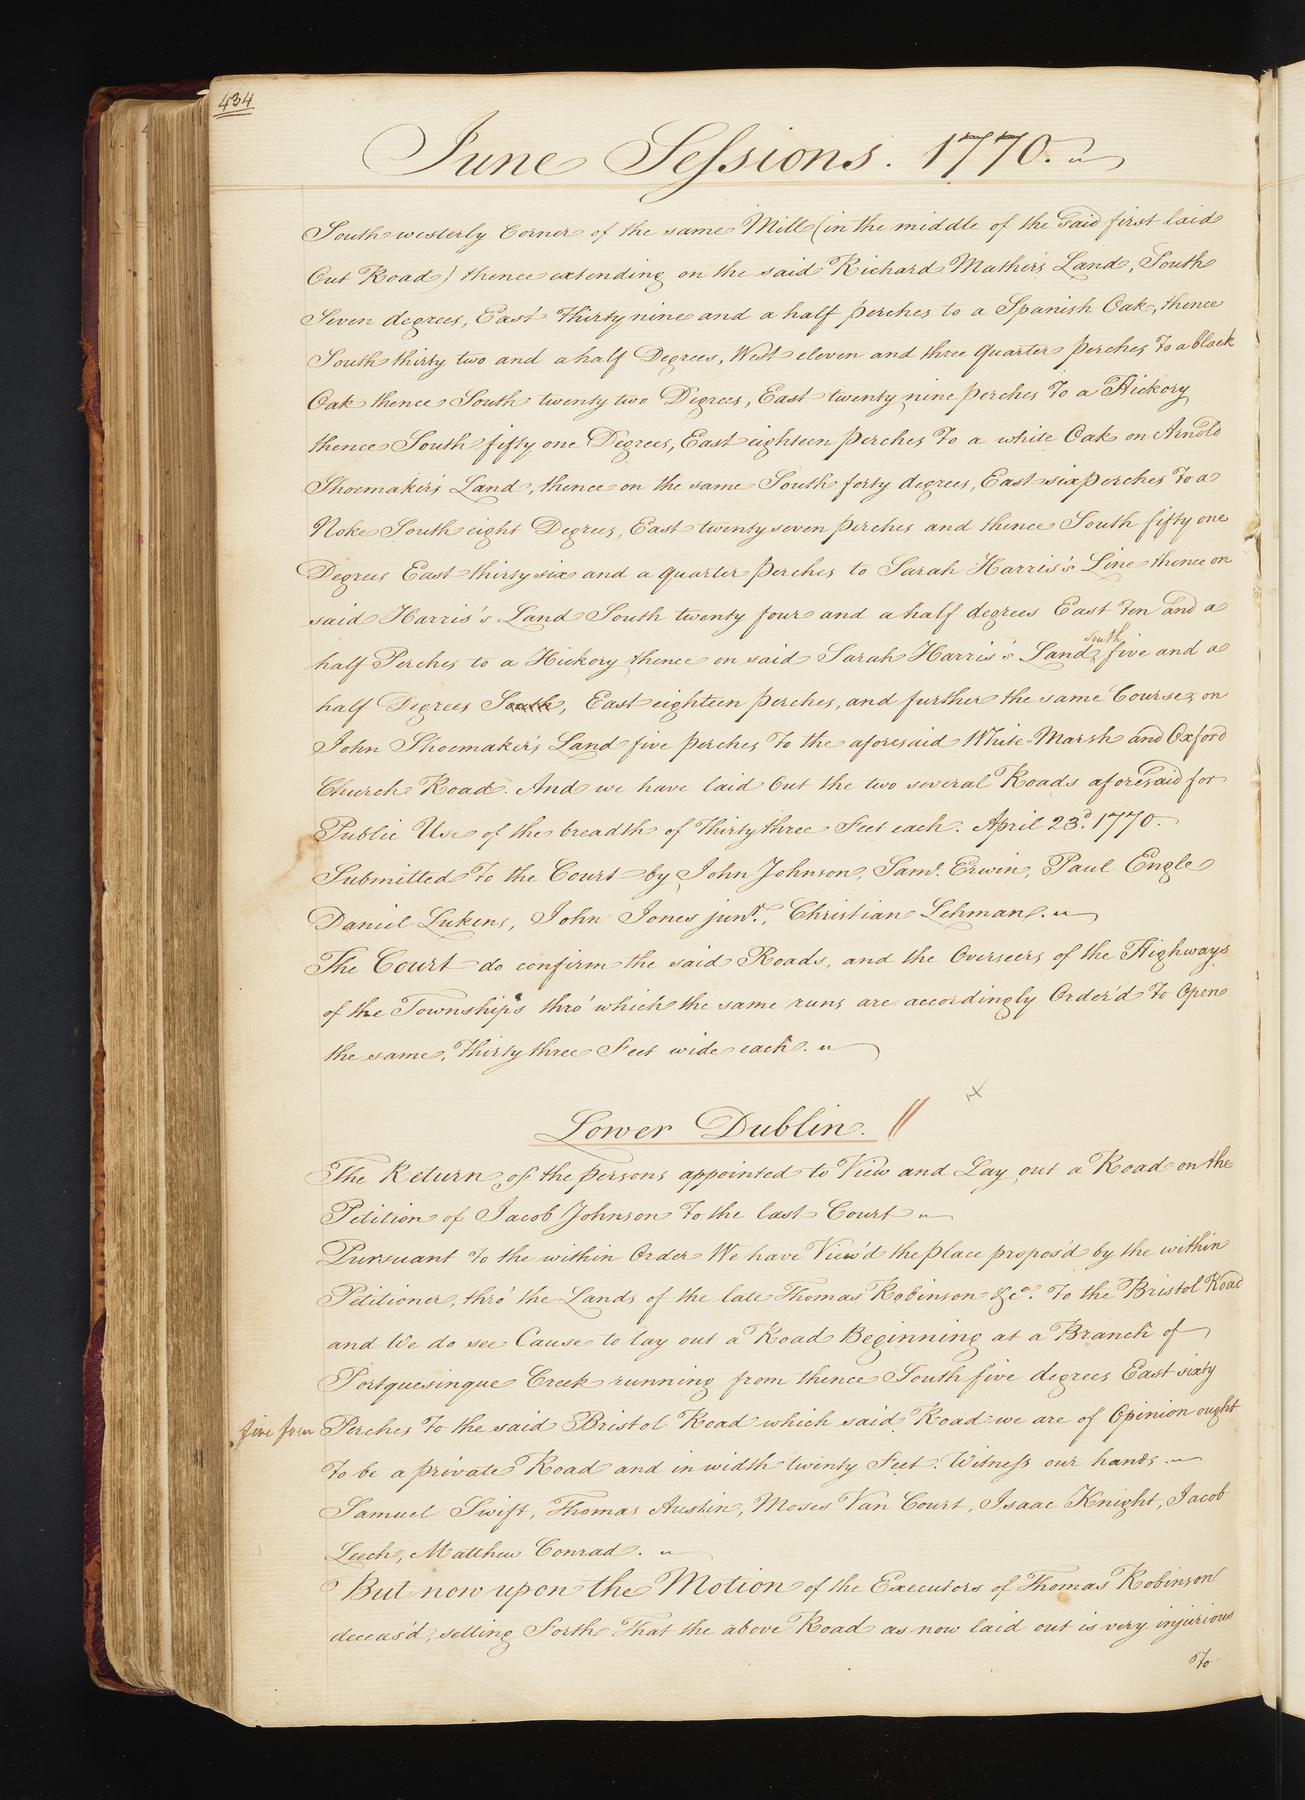 434
June Sessions. 1770.
South westerly Corner of the same Mill (in the middle of the said first laid
Out Road) thence extending on the said Richard Mather's Land, South
Seven degrees, East Thirty nine and a half perches to a Spanish Oak, thence
South thirty two and a half Degrees, West eleven and three quarters perches To a black
Oak thence South twenty two Degrees, East twenty nine perches To a Hickory
thence South fifty one Degrees, East eighteen perches To a white Oak on Arnold
Shoemaker's Land, thence on the same South forty degrees, East six perches To a
Noke South eight Degrees, East twenty seven perches and thence South fifty one
Degrees East thirty six and a quarter perches to Sarah Harris's Line thence on
said Harris's Land South twenty four and a half degrees East Ten and a
half Perches to a Hickory thence on said Sarah Harris's Land south five and a
half Degrees South, East eighteen perches, and further the same Course, on
John Shoemaker's Land five perches To the aforesaid White-Marsh and Oxford
Church Road. And we have laid Out the two several Roads aforesaid for
Public Use of the breadth of Thirty three Feet each. April 23d. 1770.
Submitted To the Court by John Johnson, Saml. Erwin, Paul Engle
Daniel Lukens, John Jones junr., Christian Lehman.
The Court do confirm the said Roads, and the Overseers of the Highways
of the Townships thro' which the same runs are accordingly Order'd To Open
the same, Thirty three Feet wide each.
Lower Dublin. //
The Return of the persons appointed to View and Lay out a Road on the
Petition of Jacob Johnson To the last Court
Pursuant To the within Order We have View'd the place propos'd by the within
Petitioner, thro' the Lands of the late Thomas Robinson &ca. To the Bristol Road
and We do see Cause to lay out a Road Beginning at a Branch of
Portquesinque Creek running from thence South five degrees East sixty
five Perches To the said Bristol Road which said Road we are of Opinion ought
To be a private Road and in width twenty Feet. Witness our hands.
Samuel Swift, Thomas Austin, Moses Van Court, Isaac Knight, Jacob
Leech, Matthew Conrad.
But now upon the Motion of the Executors of Thomas Robinson
deceas'd, setting Forth That the above Road as now laid out is very injurious
To